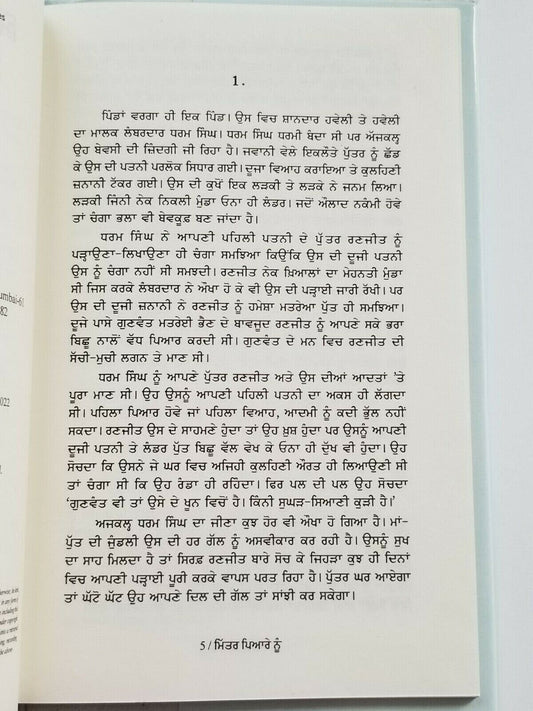 es
1.
ਪਿੰਡਾਂ ਵਰਗਾ ਹੀ ਇਕ ਪਿੰਡ। ਉਸ ਵਿਚ ਸ਼ਾਨਦਾਰ ਹਵੇਲੀ ਤੇ ਹਵੇਲੀ
ਦਾ ਮਾਲਕ ਲੰਬਰਦਾਰ ਧਰਮ ਸਿੰਘ। ਧਰਮ ਸਿੰਘ ਧਰਮੀ ਬੰਦਾ ਸੀ ਪਰ ਅੱਜਕਲ੍ਹ
ਉਹ ਬੇਵਸੀ ਦੀ ਜ਼ਿੰਦਗੀ ਜੀ ਰਿਹਾ ਹੈ। ਜਵਾਨੀ ਵੇਲੇ ਇਕਲੌਤੇ ਪੁੱਤਰ ਨੂੰ ਛੱਡ
ਕੇ ਉਸ ਦੀ ਪਤਨੀ ਪਰਲੋਕ ਸਿਧਾਰ ਗਈ। ਦੂਜਾ ਵਿਆਹ ਕਰਾਇਆ ਤੇ ਕੁਲਹਿਣੀ
ਜ਼ਨਾਨੀ ਟੱਕਰ ਗਈ। ਉਸ ਦੀ ਕੁਖੋਂ ਇਕ ਲੜਕੀ ਤੇ ਲੜਕੇ ਨੇ ਜਨਮ ਲਿਆ।
ਲੜਕੀ ਜਿੰਨੀ ਨੇਕ ਨਿਕਲੀ ਮੁੰਡਾ ਓਨਾ ਹੀ ਲੰਡਰ। ਜਦੋਂ ਔਲਾਦ ਨਕੰਮੀ ਹੋਵੇ
ਤਾਂ ਚੰਗਾ ਭਲਾ ਵੀ ਬੇਵਕੂਫ਼ ਬਣ ਜਾਂਦਾ ਹੈ।
ਧਰਮ ਸਿੰਘ ਨੇ ਆਪਣੀ ਪਹਿਲੀ ਪਤਨੀ ਦੇ ਪੁੱਤਰ ਰਣਜੀਤ ਨੂੰ
ਪੜ੍ਹਾਉਣਾ-ਲਿਖਾਉਣਾ ਹੀ ਚੰਗਾ ਸਮਝਿਆ ਕਿਉਂਕਿ ਉਸ ਦੀ ਦੂਜੀ ਪਤਨੀ
ਉਸ ਨੂੰ ਚੰਗਾ ਨਹੀਂ ਸੀ ਸਮਝਦੀ। ਰਣਜੀਤ ਨੇਕ ਖ਼ਿਆਲਾਂ ਦਾ ਮੇਹਨਤੀ ਮੁੰਡਾ
ਸੀ ਜਿਸ ਕਰਕੇ ਲੰਬਰਦਾਰ ਨੇ ਔਖਾ ਹੋ ਕੇ ਵੀ ਉਸ ਦੀ ਪੜ੍ਹਾਈ ਜਾਰੀ ਰੱਖੀ। ਪਰ
ਉਸ ਦੀ ਦੂਜੀ ਜ਼ਨਾਨੀ ਨੇ ਰਣਜੀਤ ਨੂੰ ਹਮੇਸ਼ਾ ਮਤਰੇਆ ਪੁੱਤ ਹੀ ਸਮਝਿਆ।
ਦੂਜੇ ਪਾਸੇ ਗੁਣਵੰਤ ਮਤਰੇਈ ਭੈਣ ਦੇ ਬਾਵਜੂਦ ਰਣਜੀਤ ਨੂੰ ਆਪਣੇ ਸਕੇ ਭਰਾ
ਬਿਛੂ ਨਾਲੋਂ ਵੱਧ ਪਿਆਰ ਕਰਦੀ ਸੀ। ਗੁਣਵੰਤ ਦੇ ਮਨ ਵਿਚ ਰਣਜੀਤ ਦੀ
ਸੱਚੀ-ਮੁਚੀ ਲਗਨ ਤੇ ਮਾਣ ਸੀ।
ਧਰਮ ਸਿੰਘ ਨੂੰ ਆਪਣੇ ਪੁੱਤਰ ਰਣਜੀਤ ਅਤੇ ਉਸ ਦੀਆਂ ਆਦਤਾਂ 'ਤੇ
ਪੂਰਾ ਮਾਣ ਸੀ। ਉਹ ਉਸਨੂੰ ਆਪਣੀ ਪਹਿਲੀ ਪਤਨੀ ਦਾ ਅਕਸ ਹੀ ਲੱਗਦਾ
ਸੀ। ਪਹਿਲਾ ਪਿਆਰ ਹੋਵੇ ਜਾਂ ਪਹਿਲਾ ਵਿਆਹ, ਆਦਮੀ ਨੂੰ ਕਦੀ ਭੁੱਲ ਨਹੀਂ
ਸਕਦਾ। ਰਣਜੀਤ ਉਸ ਦੇ ਸਾਹਮਣੇ ਹੁੰਦਾ ਤਾਂ ਉਹ ਖ਼ੁਸ਼ ਹੁੰਦਾ ਪਰ ਉਸਨੂੰ ਆਪਣੀ
ਦੂਜੀ ਪਤਨੀ ਤੇ ਲੰਡਰ ਪੁੱਤ ਬਿਛੂ ਵੱਲ ਵੇਖ ਕੇ ਓਨਾ ਹੀ ਦੁੱਖ ਵੀ ਹੁੰਦਾ। ਉਹ
ਸੋਚਦਾ ਕਿ ਉਸਨੇ ਜੇ ਘਰ ਵਿਚ ਅਜਿਹੀ ਕੁਲਹਿਣੀ ਔਰਤ ਹੀ ਲਿਆਉਣੀ ਸੀ
ਤਾਂ ਚੰਗਾ ਸੀ ਕਿ ਉਹ ਰੰਡਾ ਹੀ ਰਹਿੰਦਾ। ਫਿਰ ਪਲ ਦੀ ਪਲ ਉਹ ਸੋਚਦਾ
'ਗੁਣਵੰਤ ਵੀ ਤਾਂ ਉਸੇ ਦੇ ਖੂਨ ਵਿਚੋਂ ਹੈ। ਕਿੰਨੀ ਸੁਘੜ-ਸਿਆਣੀ ਕੁੜੀ ਹੈ।'
ਅਜਕਲ੍ਹ ਧਰਮ ਸਿੰਘ ਦਾ ਜੀਣਾ ਕੁਝ ਹੋਰ ਵੀ ਔਖਾ ਹੋ ਗਿਆ ਹੈ। ਮਾਂ-
ਪੁੱਤ ਦੀ ਜੁੰਡਲੀ ਉਸ ਦੀ ਹਰ ਗੱਲ ਨੂੰ ਅਸਵੀਕਾਰ ਕਰ ਰਹੀ ਹੈ। ਉਸਨੂੰ ਸੁਖ
ਦਾ ਸਾਹ ਮਿਲਦਾ ਹੈ ਤਾਂ ਸਿਰਫ਼ ਰਣਜੀਤ ਬਾਰੇ ਸੋਚ ਕੇ ਜਿਹੜਾ ਕੁਝ ਹੀ ਦਿਨਾਂ
ਵਿਚ ਆਪਣੀ ਪੜ੍ਹਾਈ ਪੂਰੀ ਕਰਕੇ ਵਾਪਸ ਪਰਤ ਰਿਹਾ ਹੈ। ਪੁੱਤਰ ਘਰ ਆਏਗਾ
ਤਾਂ ਘੱਟੋ ਘੱਟ ਉਹ ਆਪਣੇ ਦਿਲ ਦੀ ਗੱਲ ਤਾਂ ਸਾਂਝੀ ਕਰ ਸਕੇਗਾ।
5 / ਮਿੱਤਰ ਪਿਆਰੇ ਨੂੰ
umbai-61
82
2022